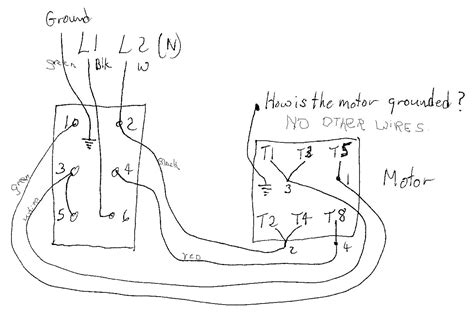 Ground
L1 L2 (N)
green Blk W
How is the motor grounded?
NO OTHER WIRES
1 2
3 4
5 6
green
Black
red
T1 T3 T5
3 1
Motor
T2 T4 T8
2 4